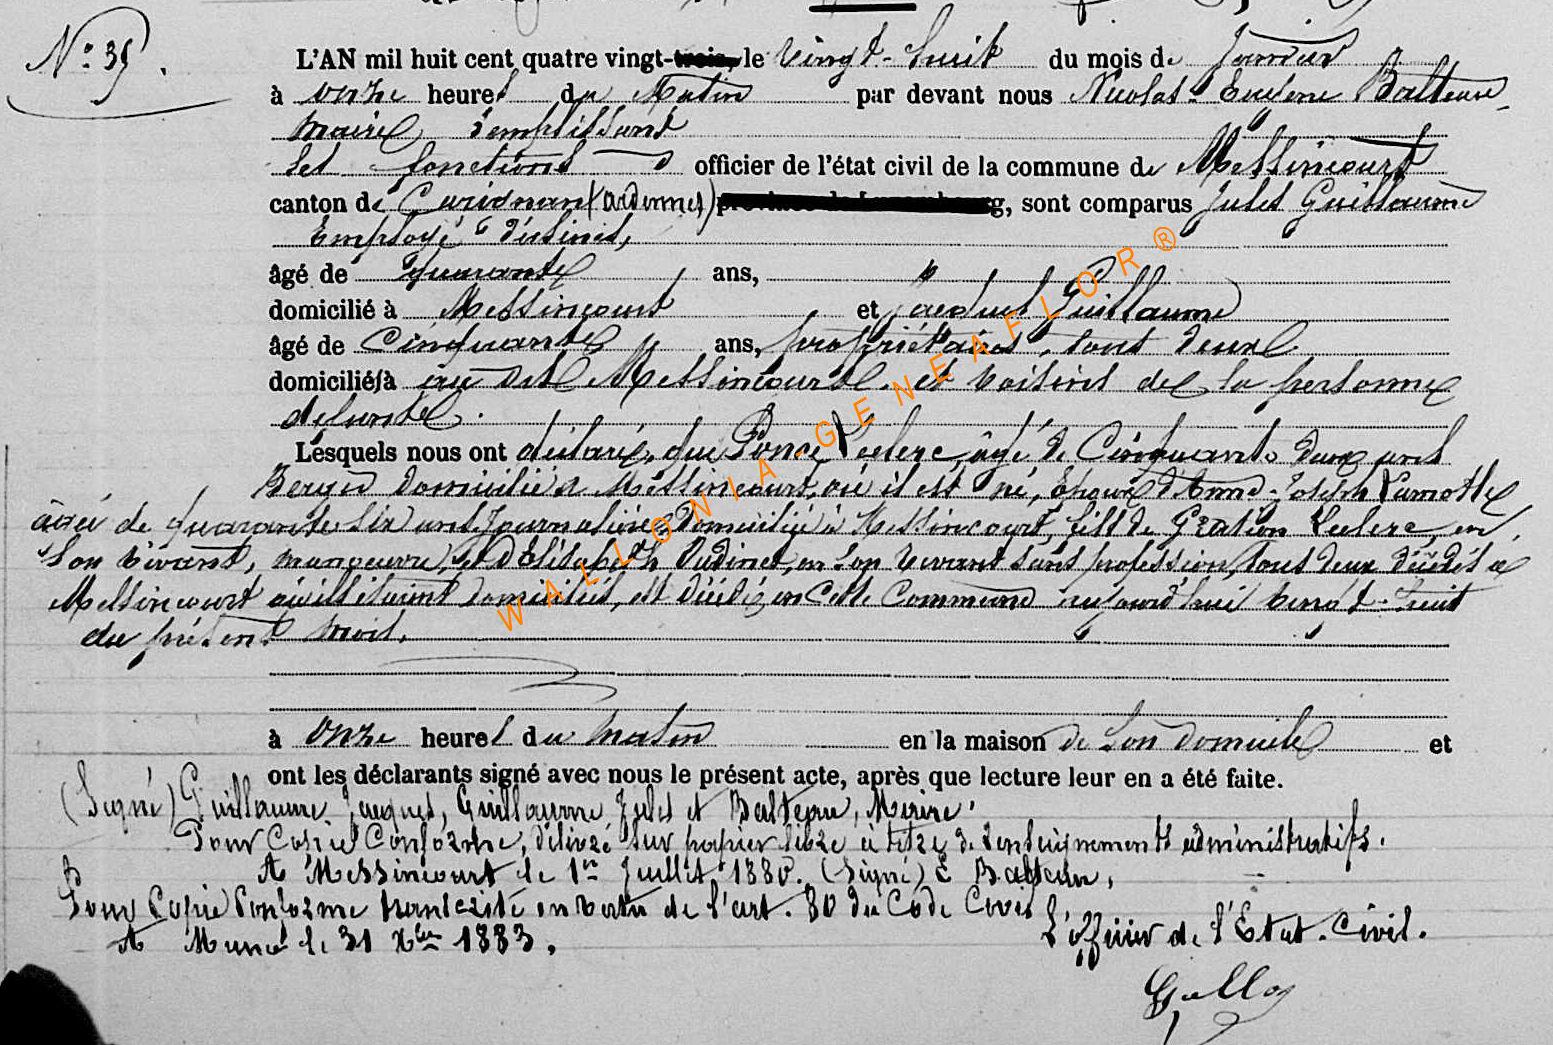 N° 35.
L'AN mil huit cent quatre vingt-trois, le vingt-huit du mois de Janvier
à onze heures du Matin par devant nous Nicolas-Eugène Balteau,
maire remplissant
les fonctions d officier de l'état civil de la commune de Messincourt
canton de Carignan (ardennes) province de Luxembourg, sont comparus Jules Guillaume
Employé d'usines,
âgé de quarante ans, "
domicilié à Messincourt et Jacques Guillaume
âgé de Cinquante ans, propriétaire, tous deux
domiciliés à au dit Messincourt. et voisins de la personne
défunte.
Lesquels nous ont déclaré, que Ponce Leclerc, âgé de Cinquante deux ans
Berger domicilié à Messincourt, où il est né, Epoux d'Anne-Joseph Lamotte
âgée de quarante six ans Journalière domiciliée à Messincourt, fils de Gration Leclerc, en
son vivant, manoeuvre, et d'Elisabeth Dudinet, en son vivant sans profession, tous deux décédés à
Messincourt où ils étaient domiciliés, est décédé en cette Commune aujourd'hui vingt-huit
du présent mois,
à onze heures du matin en la maison de son domicile et
ont les déclarants signé avec nous le présent acte, après que lecture leur en a été faite.
(Signé) Guillaume Jacques, Guillaume Jules et Balteau, Maire.
Pour Copie Conforme, délivré sur papier libre à titre de renseignements administratifs.
A Messincourt le 1er Juillet 1880. (Signé) E Balteau.
Pour Copie Conforme transcrite en vertu de l'art. 80 du Code Civil
A Muno le 31 Xbre 1883.
L'officier de l'Etat. Civil.
WALLONIA-GENEAFLOR®